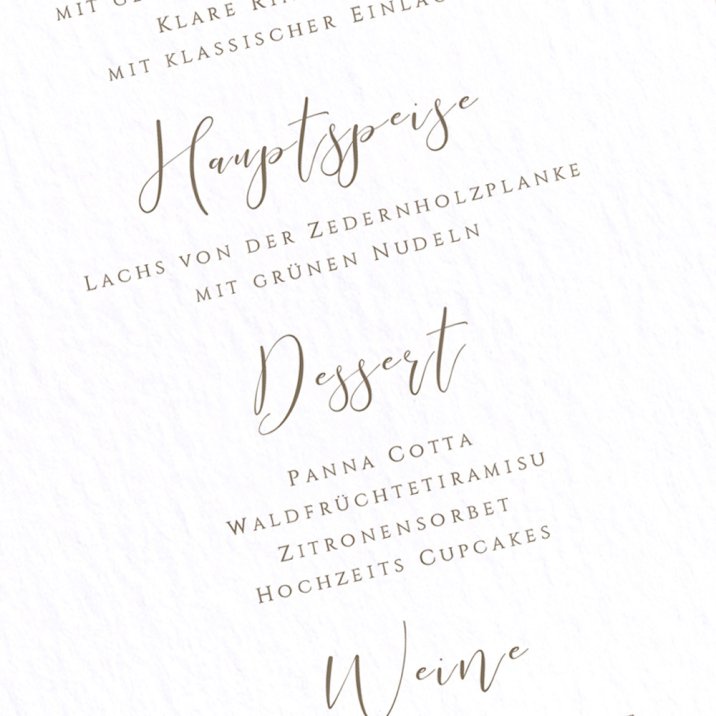 mit
Klare
mit klassischer
Hauptspeise
Lachs von der Zedernholzplanke
mit grünen Nudeln
Dessert
Panna Cotta
Waldfrüchtetiramisu
Zitronensorbet
Hochzeits Cupcakes
Weine